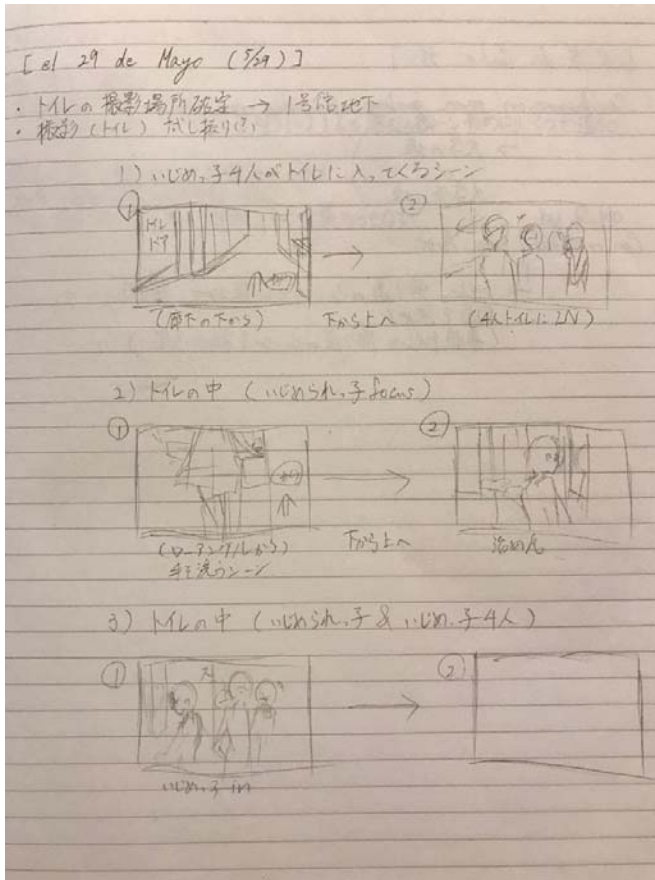 [el 29 de Mayo (5/29)]
・トイレの撮影場所確定 → 1号館地下
・撮影(トイレ) 試し撮り(?)
1) いじめっ子4人がトイレに入ってくるシーン
① ②
トイレ
ドア
(廊下の下から) 下から上へ (4人トイレに IN)
2) トイレの中 (いじめられっ子 focus)
① ②
(ローアングルから) 下から上へ
手を洗うシーン
3) トイレの中 (いじめられっ子 & いじめっ子4人)
① ②
いじめっ子 in